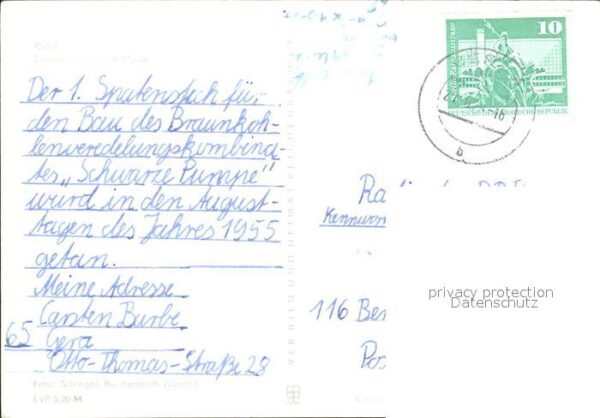 Gera
Der 1. Spatenstich für
den Bau des Braunkoh-
lenveredelungskombina-
tes „Schwarze Pumpe"
wurd in den August-
tagen des Jahres 1955
getan.
Meine Adresse
Carsten Burbe
65 Gera
Otto-Thomas-Straße 28
Foto: Schlegel, Reichenbach (Vogtl.)
EVP 0,20 M
VEB BILD UND HEIMAT REICHENBACH
10
DEUTSCHE DEMOKRATISCHE REPUBLIK
Ra
Kennwor
116 Ber
Pos
privacy protection
Datenschutz